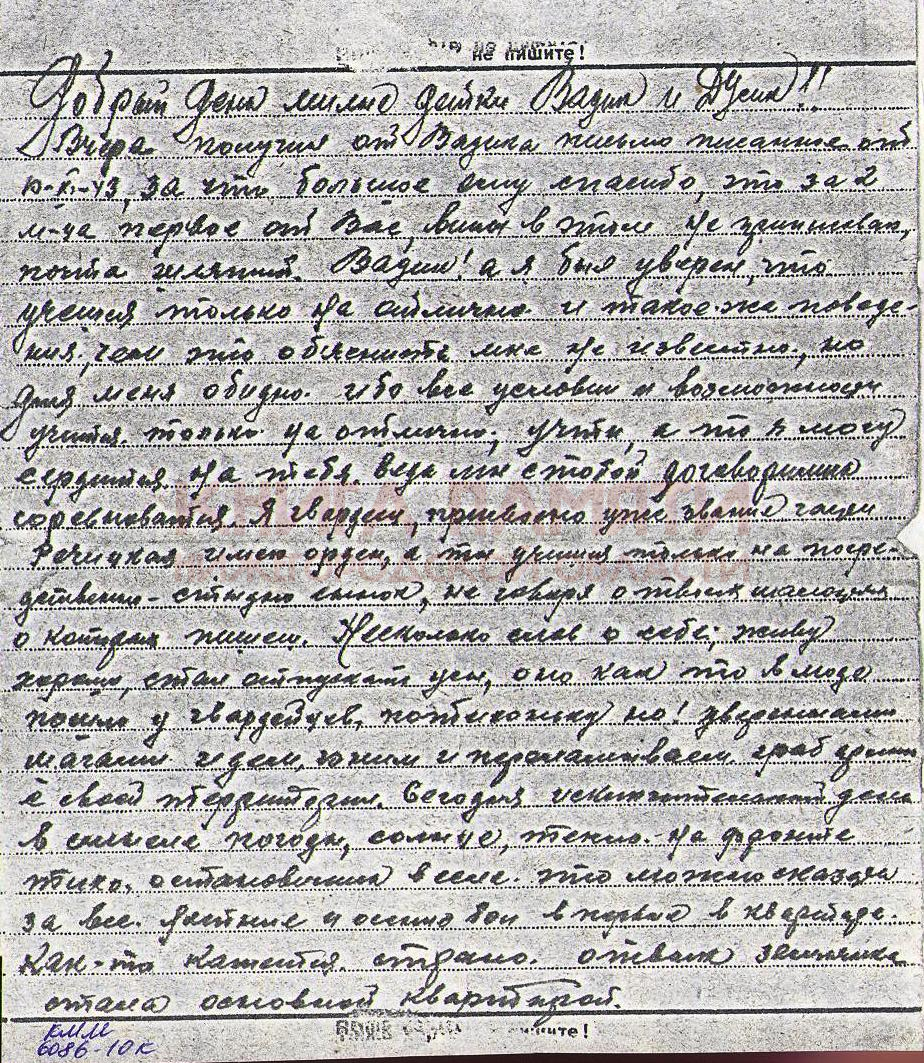 не пишите!
Добрый день милые детки Вадик и Дусик!!
Вчера получил от Вадика письмо писанное от
10-XI-43, за что большое ему спасибо, это за 2
м-ца первое от Вас, вины в этом не
почта. Вадик! а я был уверен, что
учишся только на отлично и такое-же поведе-
ния, чем это обяснить мне не известно, но
для меня обидно. ибо все условии и возможности
учится только на отлично, учти, а то я могу
сердится на тебя. Ведь мы с тобой договорились
соревноватся. Я гвардеец, присвоено уже звание
Речицкая имею орден, а ты учишся только на посре-
дственно - стыдно сынок, не говоря о твоих шалостях
о которых пишеш. Несколько слов о себе; живу
хорошо, стал отпускать усы, оно как то в моде
пошло у гвардейцев, потихоньку но!
шагами идем, и
с своей территории. Сегодня исключительный день
в смысле погоды, солнце, тепло. На фронте
тихо, остановились в селе. это можно сказать
за все летние и осенние бои впервые в квартире.
Как-то кажется странно. отвык землянка
стала основной квартирой.
КНИГА ПАМЯТИ
пишите!
КММ
6086-10к